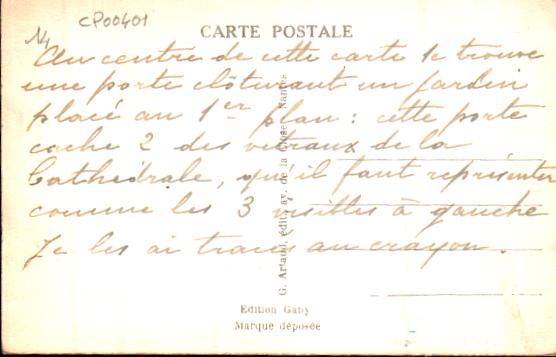 14 CP00401
CARTE POSTALE
Au centre de cette carte se trouve
une porte clôturant un jardin
placé au 1er plan : cette porte
cache 2 des vitraux de la
Cathédrale, qu'il faut représenter
comme les 3 visibles à gauche
Je les ai tracés au crayon.
G. Artaud, édit., av. de la Close, Nantes
Edition Gaby
Marque déposée